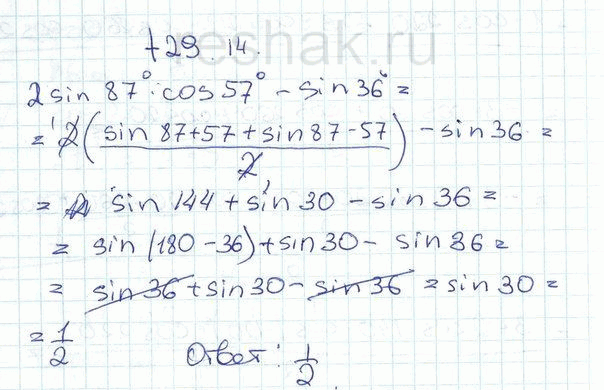 729 14.
2 sin 87° · cos 57° - sin 36° =
= 2 ( (sin 87+57 + sin 87-57) / 2 ) - sin 36 =
= sin 144 + sin 30 - sin 36 =
= sin (180 - 36) + sin 30 - sin 36 =
= sin 36 + sin 30 - sin 36 = sin 30 =
= 1/2 Ответ: 1/2.